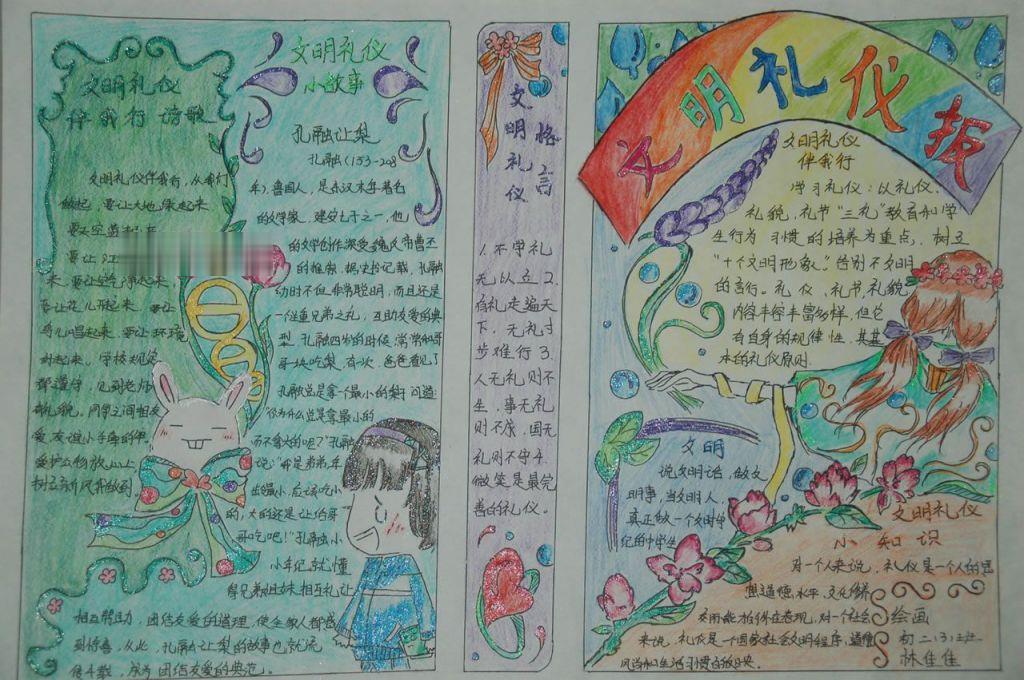 文明礼仪
伴我行 诗歌
文明礼仪伴我行，从我们
做起，要让大地绿起来
要让
来，要让空气净起来，
要让花儿开起来，要让
鸟儿唱起来，要让环境
好起来，学校规范
都遵守，见到老师
有礼貌，同学之间相友
爱，友谊小手牵的牢，
爱护公物放心上
树立新风我做到。
文明礼仪
小故事
孔融让梨
孔融（153-208
年），鲁国人，是东汉末年著名
的文学家，建安七子之一，他
的文学创作深受魏文帝曹丕
的推崇。据史书记载，孔融
幼时不但非常聪明，而且还是
一个注重兄弟之礼，互助友爱的典
型。孔融四岁的时候，常常和哥
哥一块吃梨，有次，爸爸看见了
孔融总是拿一个最小的梨子问道：
“你为什么总是拿最小的
而不拿大的呢？”孔融
说：“我是弟弟，年
龄最小，应该吃小
的，大的还是让给哥
哥吃吧！”孔融小
小年纪就懂
得兄弟姐妹相互礼让
相互帮助，团结友爱的道理，使全家人都感
到惊喜，从此，孔融让梨的故事也就流
传千载，成为团结友爱的典范。
文明礼仪
格言
1.不学礼
无以立2.
有礼走遍天
下，无礼寸
步难行3.
人无礼则不
生，事无礼
则不成，国无
礼则不宁4.
微笑是最完
善的礼仪。
文明礼仪报
文明礼仪
伴我行
学习礼仪：以礼仪、
礼貌，礼节“三礼”教育和学
生行为 习惯的培养为重点，树立
“十个文明形象”。告别不文明
的言行。礼仪，礼节，礼貌
内容丰富丰富多样，但它
有自身的规律性，其基
本的礼仪原则
文明
说文明话，做文
明事，当文明人，
真正做一个文明
纪的中学生
文明礼仪
小知识
对一个人来说，礼仪是一个人的思
想道德水平，文化修养
交际能力的外在表现，对一个社会
来说，礼仪是一个国家社会文明程序，道德
风尚和生活习惯的反映。
绘画
初二、3）班
林佳佳